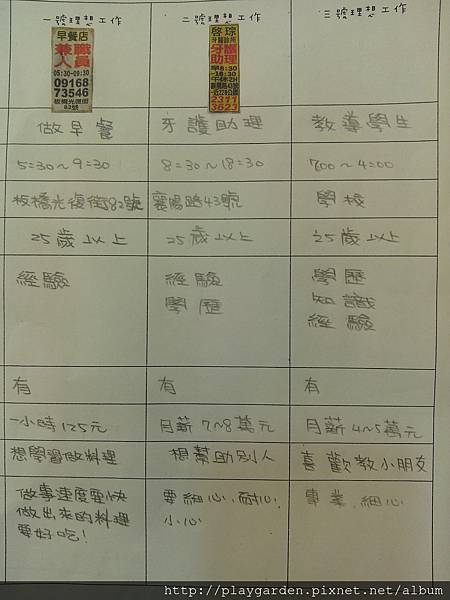 一號理想工作 二號理想工作 三號理想工作
早餐店
兼職
人員
05:30-09:30
09168
73546
板橋光復街
82號
啓琮
牙醫診所
牙醫
助理
早8:30
-18:30
襄陽路43號
2311
3623
做早餐 牙護助理 教導學生
5:30～9:30 8:30～18:30 7:00～4:00
板橋光復街82號 襄陽路43號 學校
25歲以上 25歲以上 25歲以上
經驗 經驗 學歷
學歷 知識
經驗
有 有 有
一小時125元 月薪7~8萬元 月薪4~5萬元
想學習做料理 想幫助別人 喜歡教小朋友
做事速度要快 要細心、耐心、 專業、細心
做出來的料理 小心
要好吃!
http://playgarden.pixnet.net/album